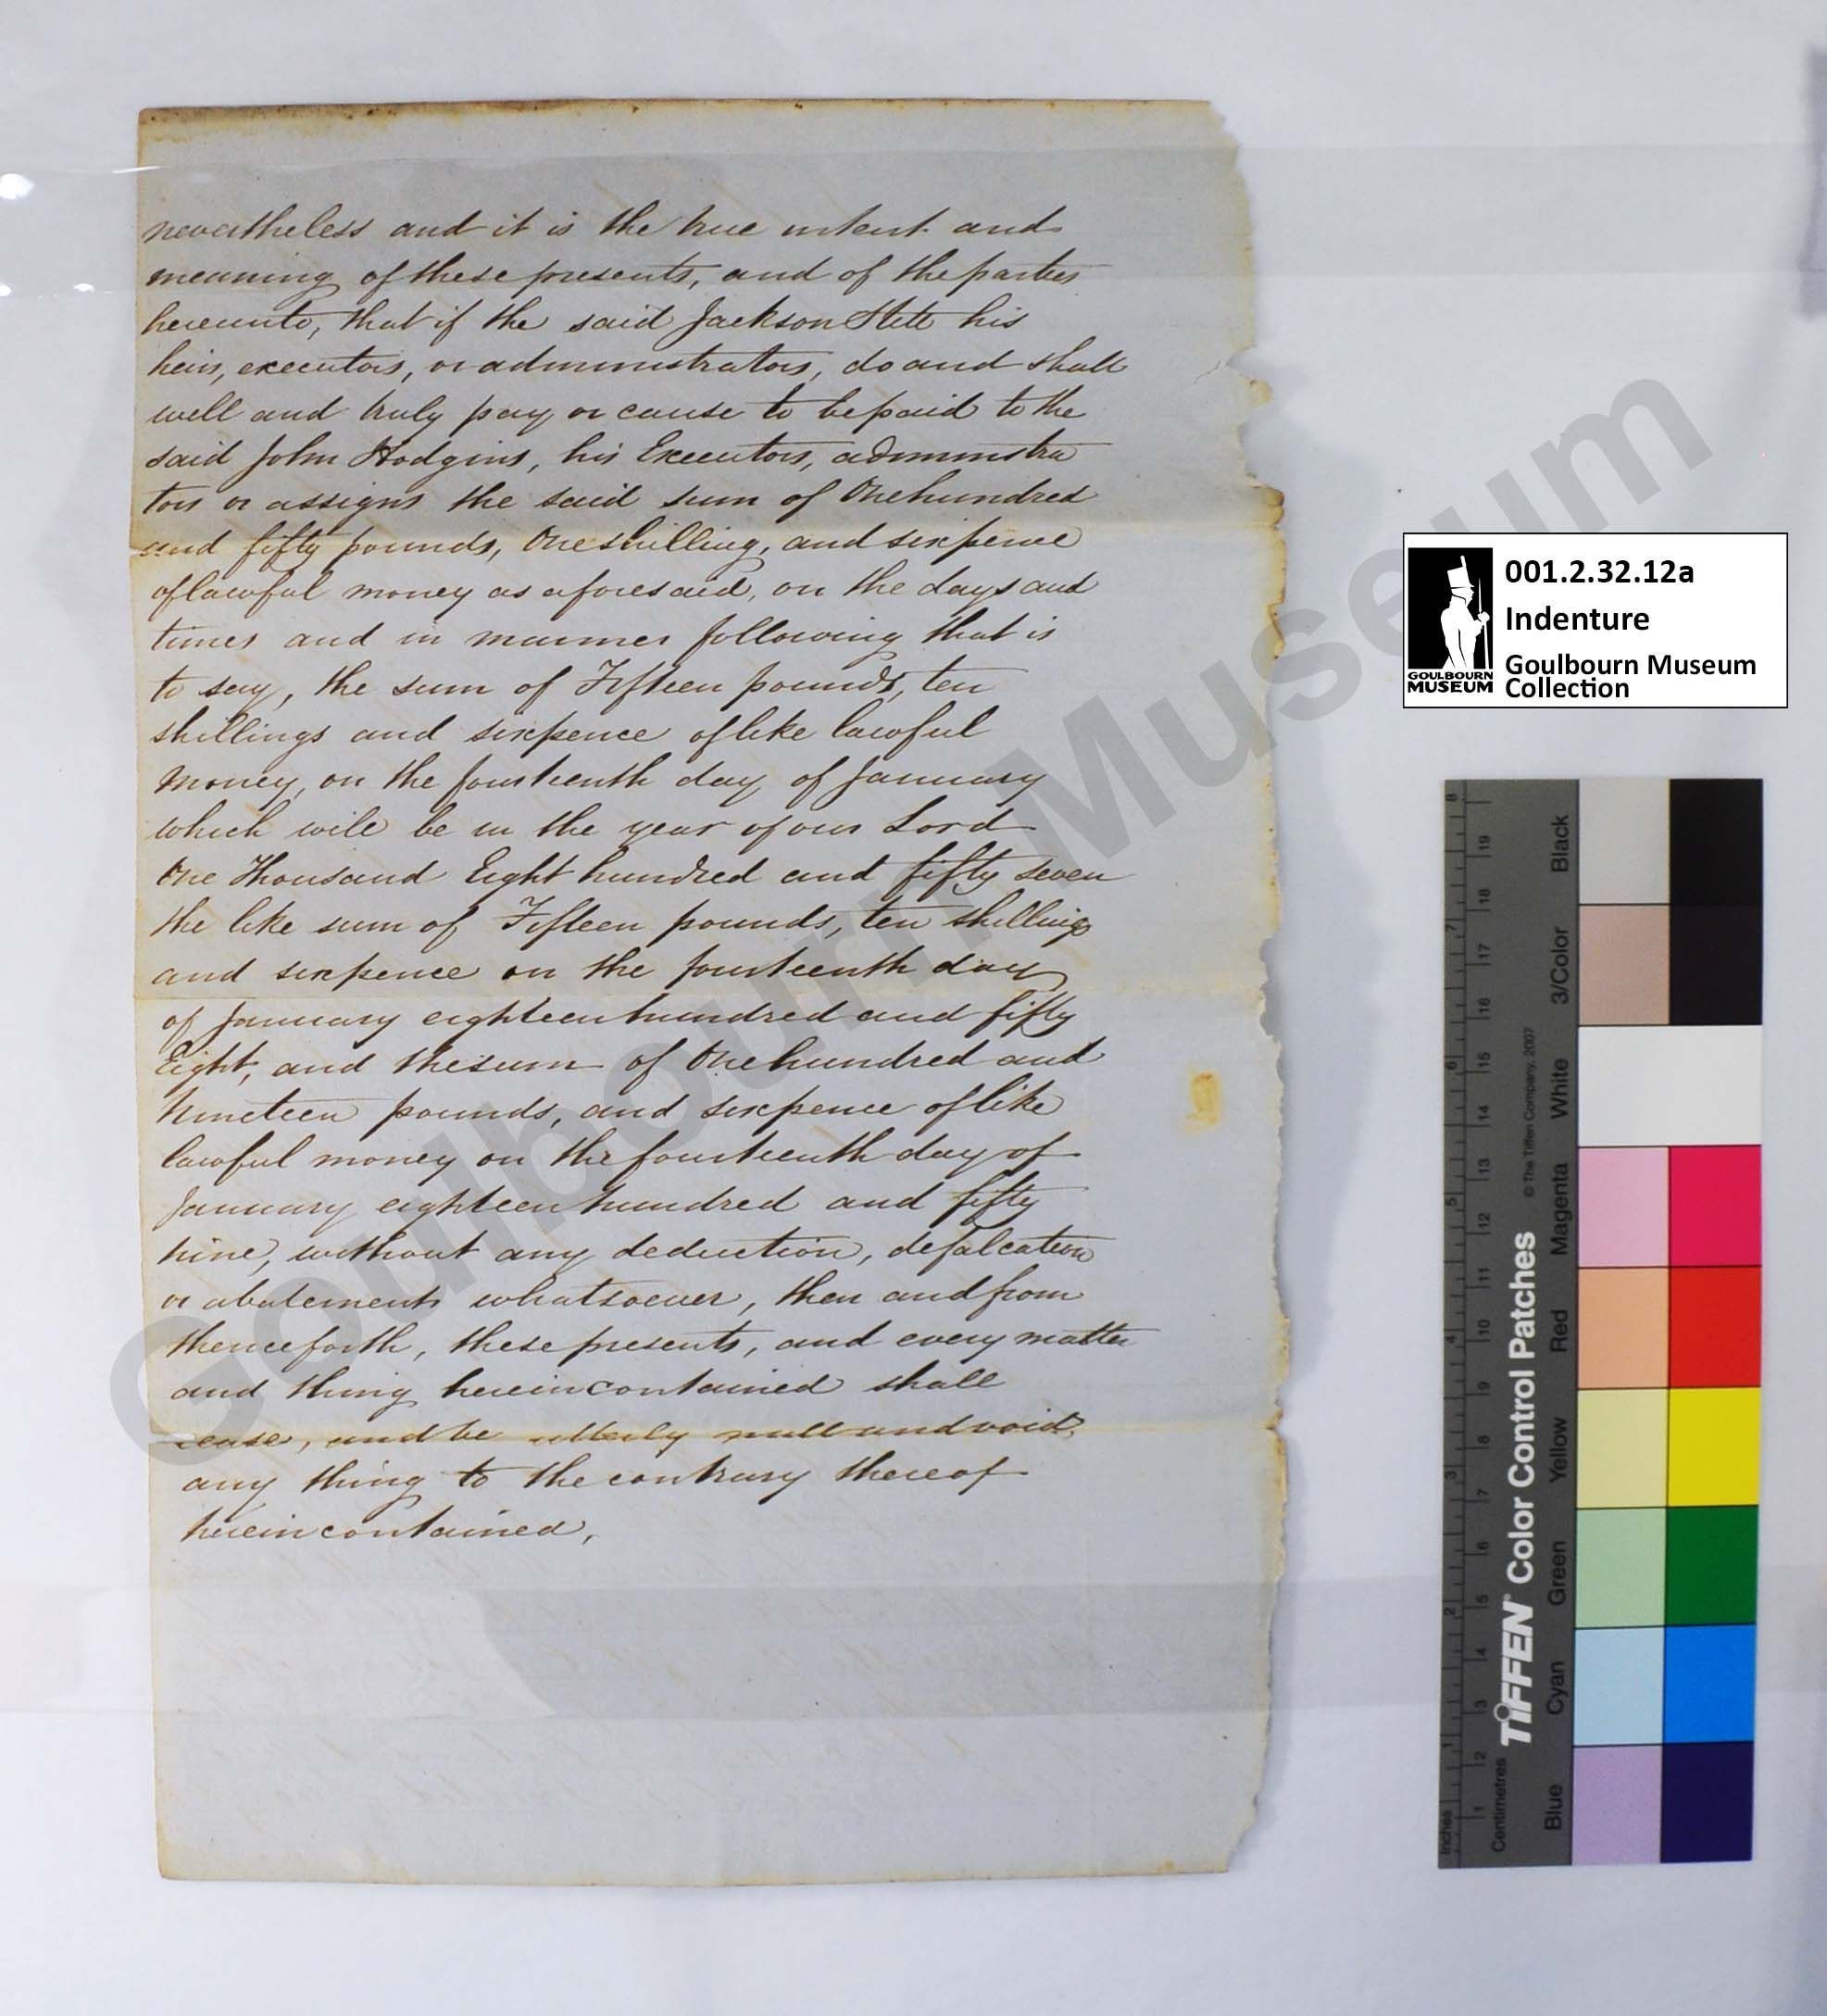 nevertheless and it is the true intent and
meaning of these presents, and of the parties
hereunto, that if the said Jackson Stitt his
heirs, executors, or administrators, do and shall
well and truly pay or cause to be paid to the
said John Hodgins, his Executors, administra
tors or assigns the said sum of One hundred
and fifty pounds, One shilling, and sixpence
of lawful money as aforesaid, on the days and
times and in manner following that is
to say, the sum of Fifteen pounds, ten
shillings and sixpence of like lawful
money, on the fourteenth day of January
which will be in the year of our Lord
One Thousand Eight hundred and fifty seven
the like sum of Fifteen pounds, ten shillings
and sixpence on the fourteenth day
of January eighteen hundred and fifty
Eight, and the sum of One hundred and
Nineteen pounds, and sixpence of like
lawful money on the fourteenth day of
January eighteen hundred and fifty
nine, without any deduction, defalcation
or abatement whatsoever, then and from
thenceforth, these presents, and every matter
and thing herein contained shall
cease, and be utterly null and void,
any thing to the contrary thereof
herein contained,
Goulbourn Museum
001.2.32.12a
Indenture
Goulbourn Museum
Collection
GOULBOURN
MUSEUM
TIFFEN Color Control Patches
© The Tiffen Company, 2007
Inches
Centimetres
Blue
Cyan
Green
Yellow
Red
Magenta
White
3/Color
Black
1 2 3 4 5 6 7 8
1 2 3 4 5 6 7 8 9 10 11 12 13 14 15 16 17 18 19